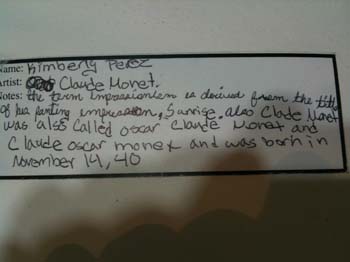 Name: Kimberly Perez
Artist: Claude Monet.
Notes: the term impressionism is derived from the title
of his painting impression, Sunrise. also Clade Monet
was also called oscar Claude Monet and
Claude oscar monet and was born in
November 14, 40